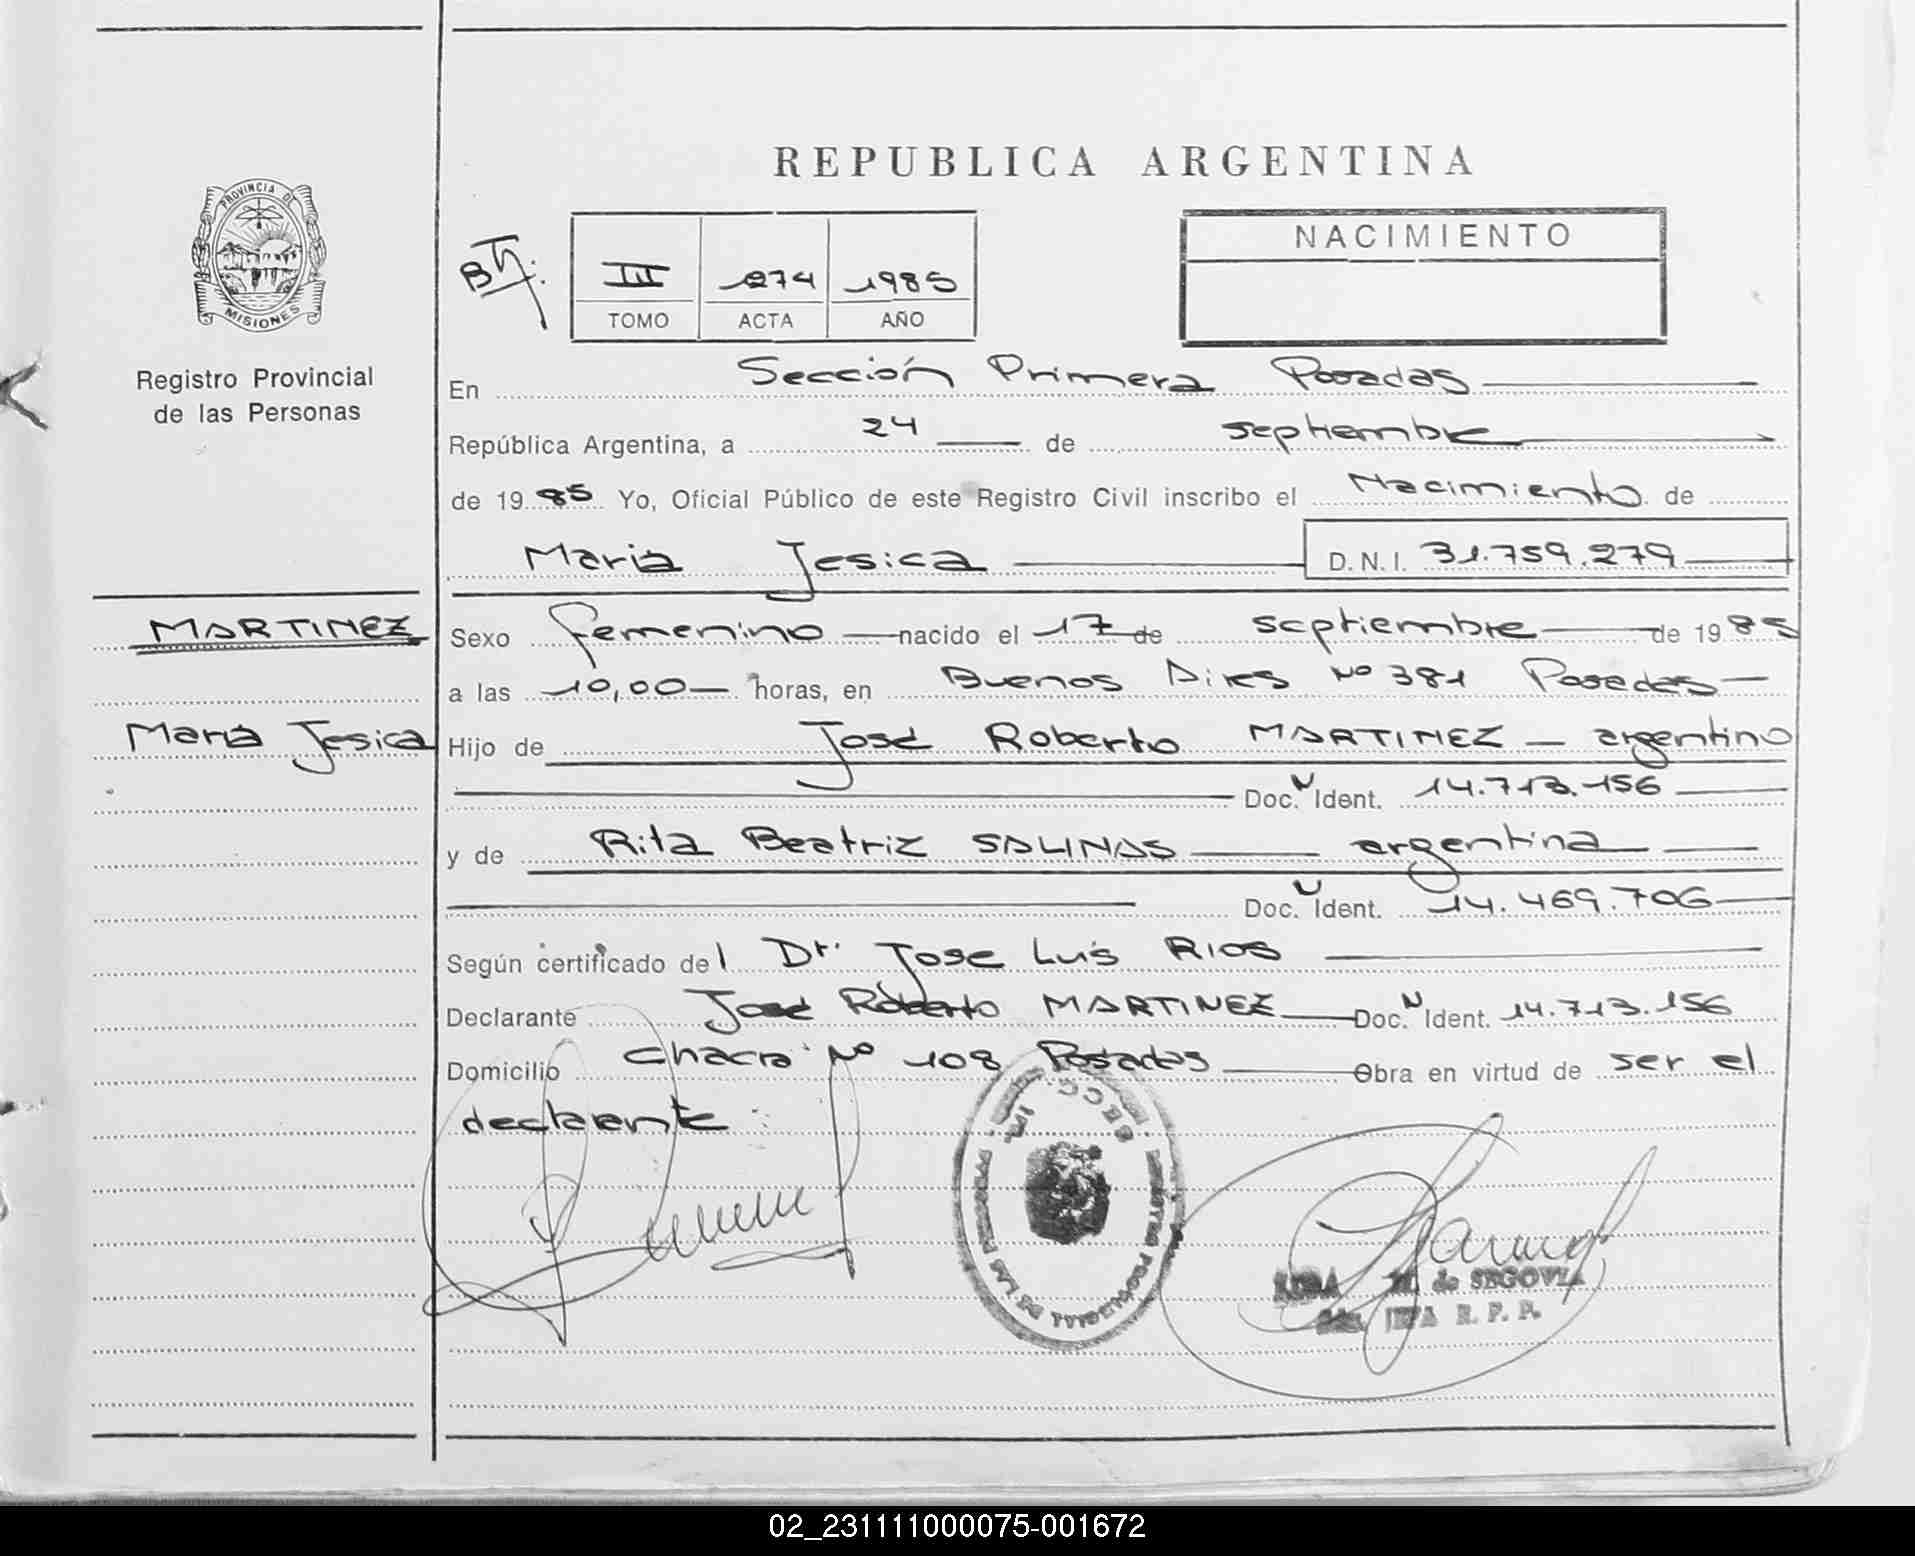 REPUBLICA ARGENTINA
PROVINCIA DE
MISIONES
Registro Provincial
de las Personas
III 1985
TOMO ACTA AÑO
NACIMIENTO
En Sección Primera Posadas
República Argentina, a 24 de septiembre
de 1985 Yo, Oficial Público de este Registro Civil inscribo el Nacimiento de
Maria Jesica D.N.I. 31.759.279
MARTINEZ
Maria Jesica
Sexo femenino nacido el 17 de septiembre de 1985
a las 10,00 horas, en Buenos Aires Nº 381 Posadas
Hijo de José Roberto MARTINEZ argentino
Doc. Ident. 14.713.156
y de Rita Beatriz SALINAS argentina
Doc. Ident. 14.469.706
Según certificado del Dr. Jose Luis RIOS
Declarante José Roberto MARTINEZ Doc. Ident. 14.713.156
Domicilio chacra Nº 108 Posadas Obra en virtud de ser el
declarante.
SECC. 1ra.
REGISTRO PROVINCIAL DE LAS PERSONAS
M. de SEGOVIA
JEFA R. P. P.
02_231111000075-001672